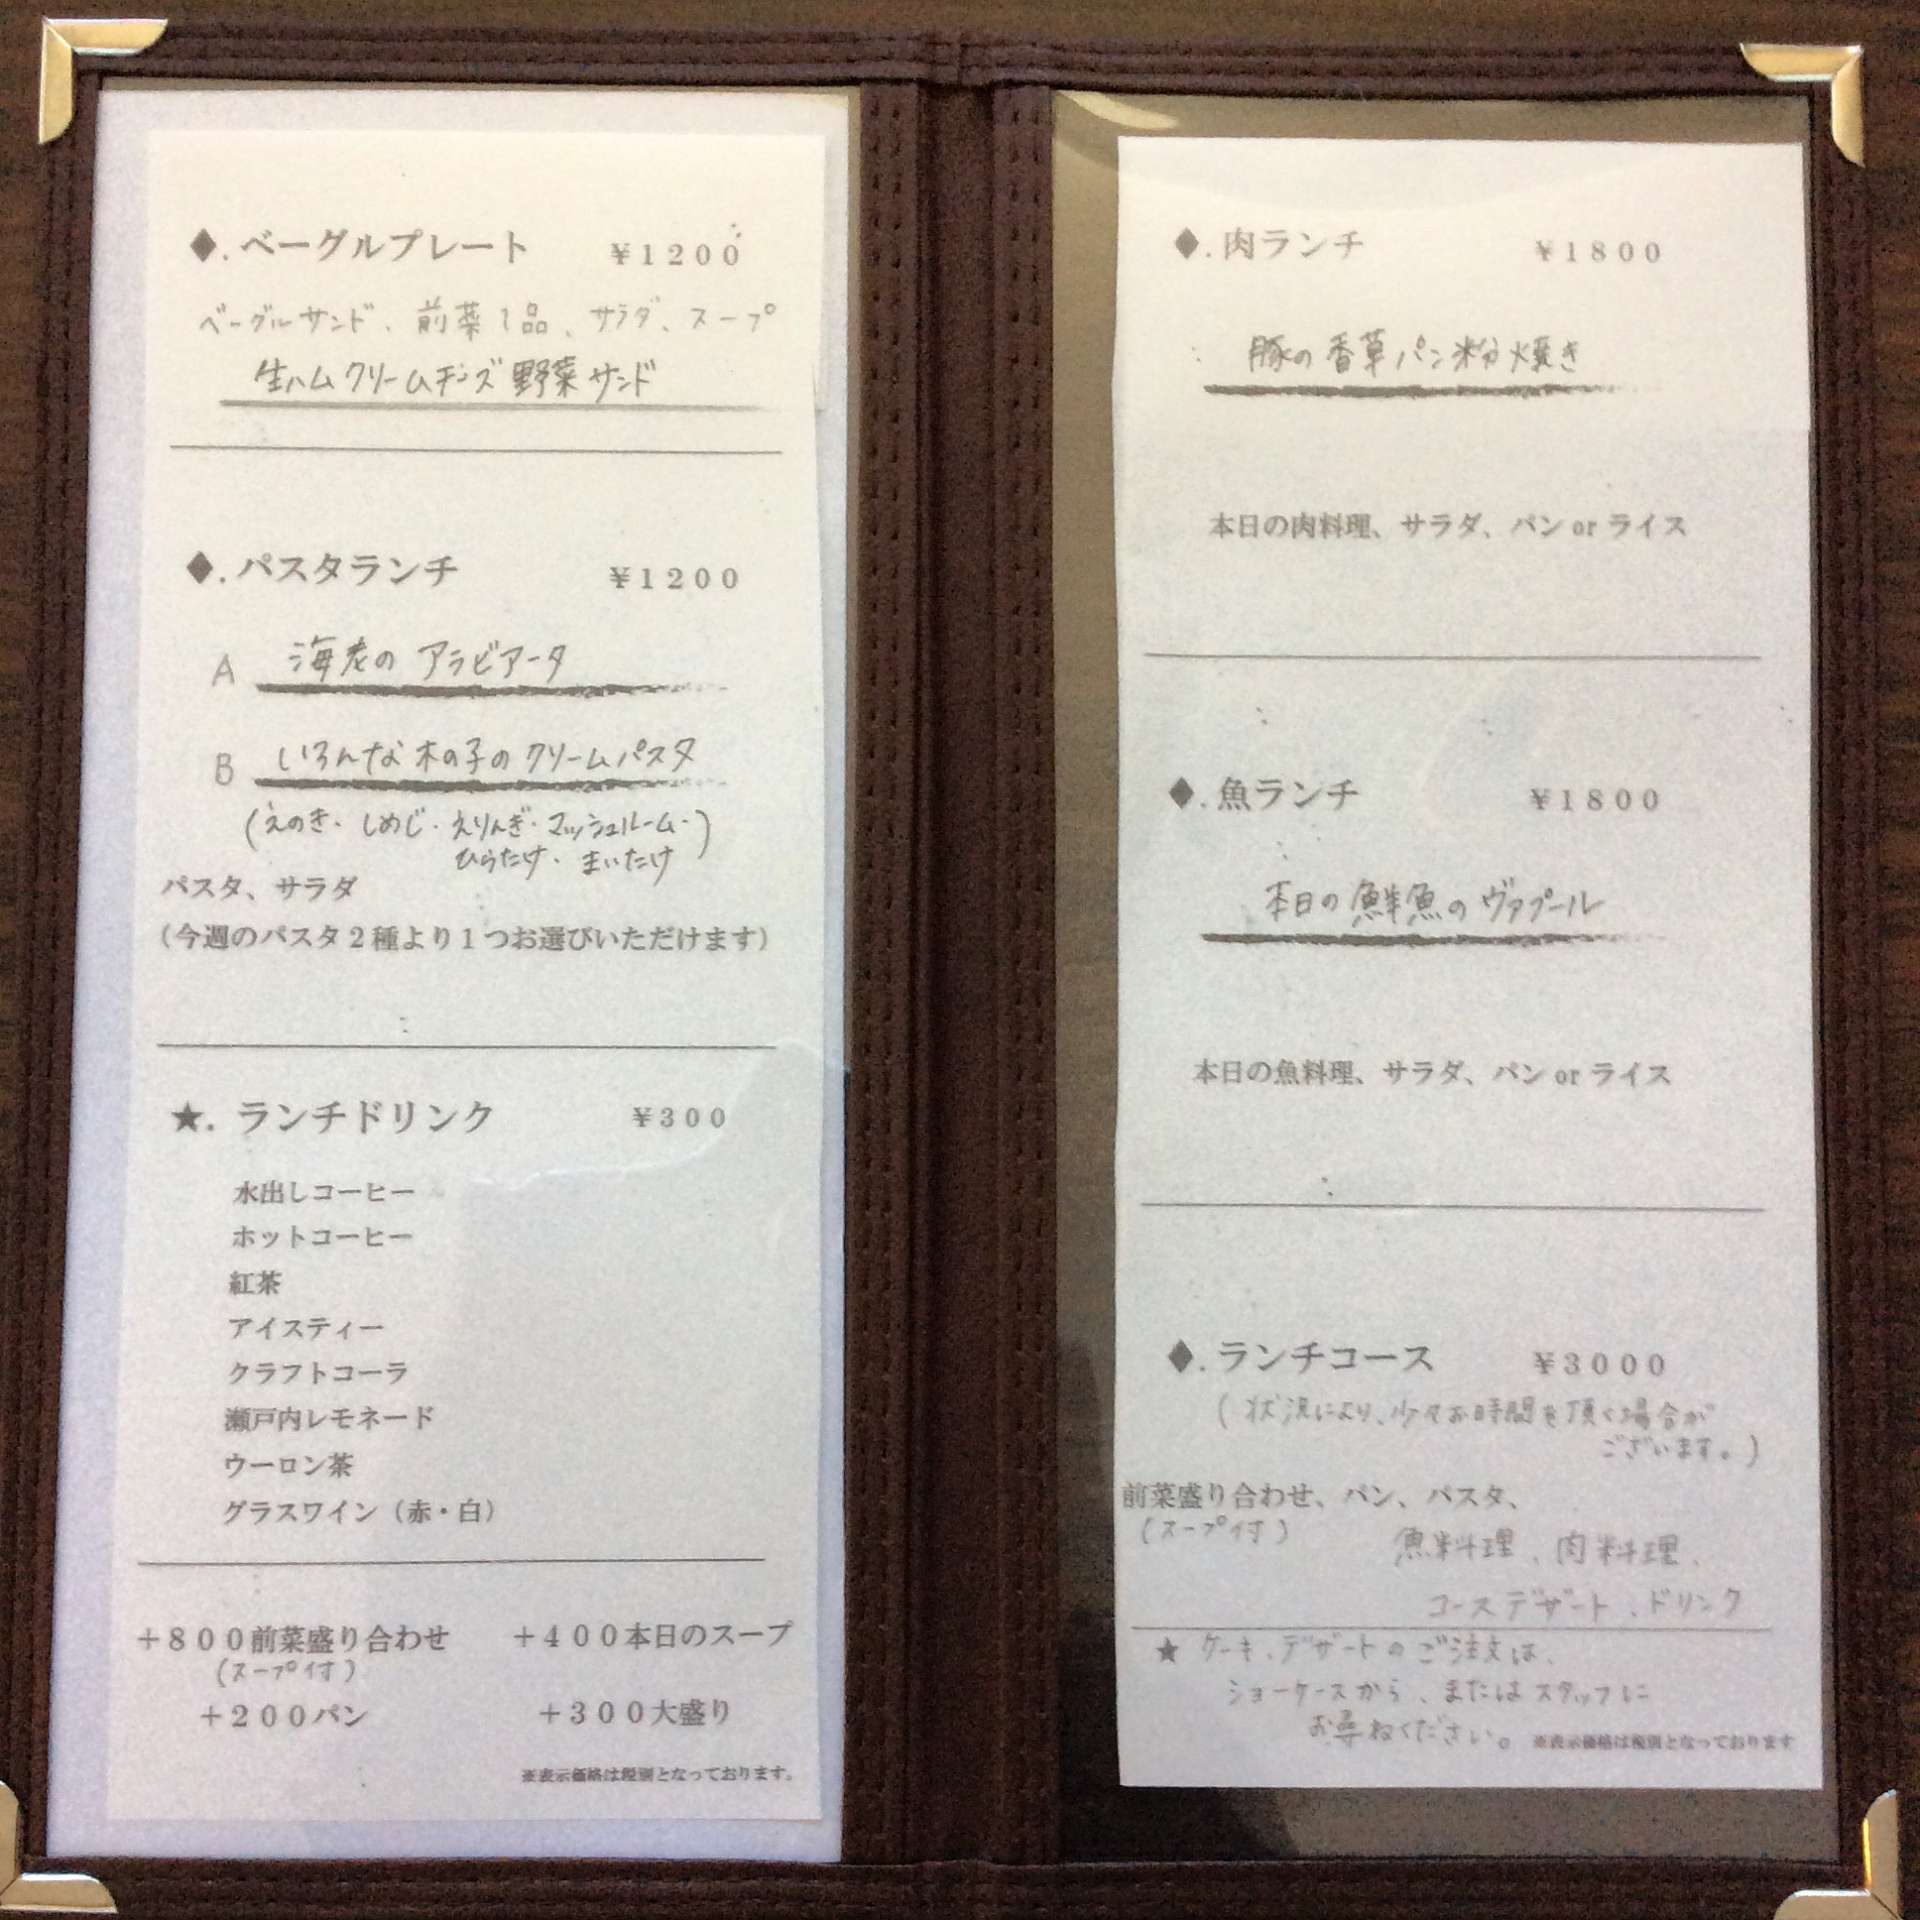 ◆. ベーグルプレート ¥1200
ベーグルサンド、前菜1品、サラダ、スープ
生ハムクリームチーズ野菜サンド
◆. パスタランチ ¥1200
A 海老のアラビアータ
B いろんな木の子のクリームパスタ
(えのき・しめじ・えりんぎ・マッシュルーム・
ひらたけ・まいたけ)
パスタ、サラダ
(今週のパスタ2種より1つお選びいただけます)
★. ランチドリンク ¥300
水出しコーヒー
ホットコーヒー
紅茶
アイスティー
クラフトコーラ
瀬戸内レモネード
ウーロン茶
グラスワイン(赤・白)
+800前菜盛り合わせ +400本日のスープ
(スープ付)
+200パン +300大盛り
※表示価格は税別となっております。
◆. 肉ランチ ¥1800
豚の香草パン粉焼き
本日の肉料理、サラダ、パン or ライス
◆. 魚ランチ ¥1800
本日の鮮魚のヴァプール
本日の魚料理、サラダ、パン or ライス
◆. ランチコース ¥3000
(状況により、少々お時間を頂く場合が
ございます。)
前菜盛り合わせ、パン、パスタ、
(スープ付)
魚料理、肉料理、
コースデザート、ドリンク
★ ケーキ、デザートのご注文は、
ショーケースから、またはスタッフに
お尋ねください。 ※表示価格は税別となっております